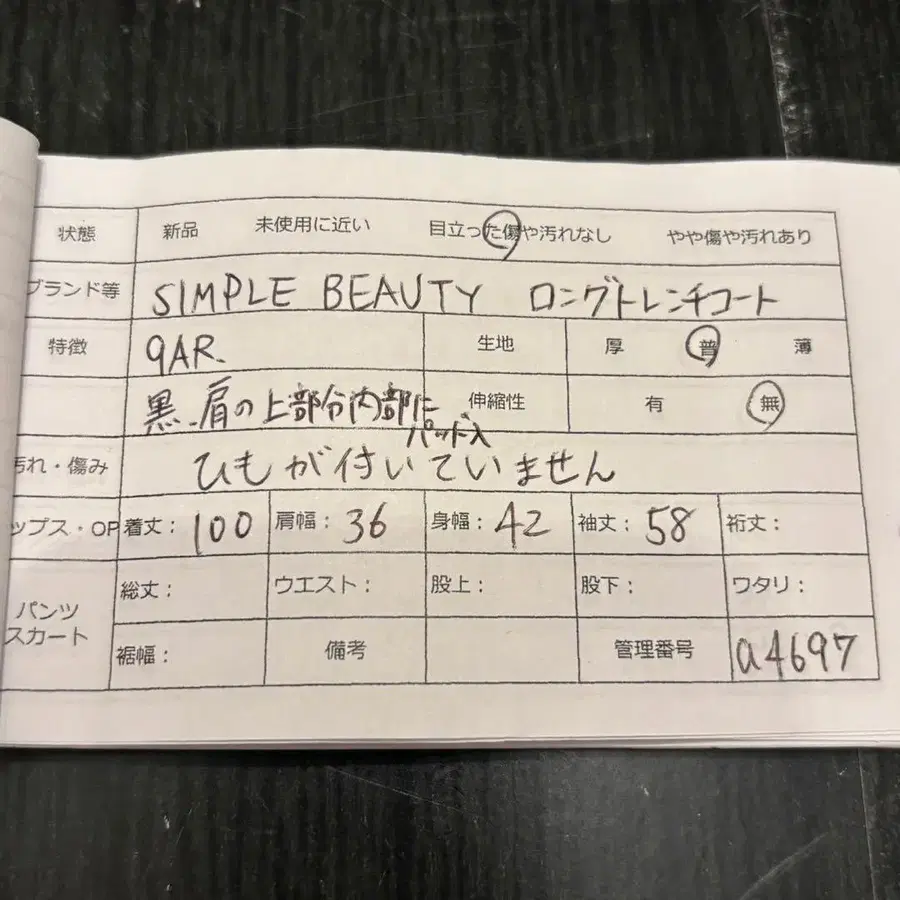 状態 新品 未使用に近い 目立った傷や汚れなし やや傷や汚れあり
ブランド等 SIMPLE BEAUTY ロングトレンチコート
特徴 9AR. 生地 厚 普 薄
黒.肩の上部分内部に 伸縮性 有 無
パッド入
汚れ・傷み ひもが付いていません
ップス・OP 着丈: 100 肩幅: 36 身幅: 42 袖丈: 58 裄丈:
パンツ 総丈: ウエスト: 股上: 股下: ワタリ:
スカート 裾幅: 備考 管理番号 a4697